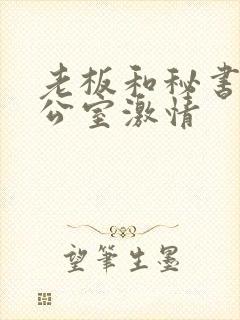 老板和秘书
公室激情
望筆生墨